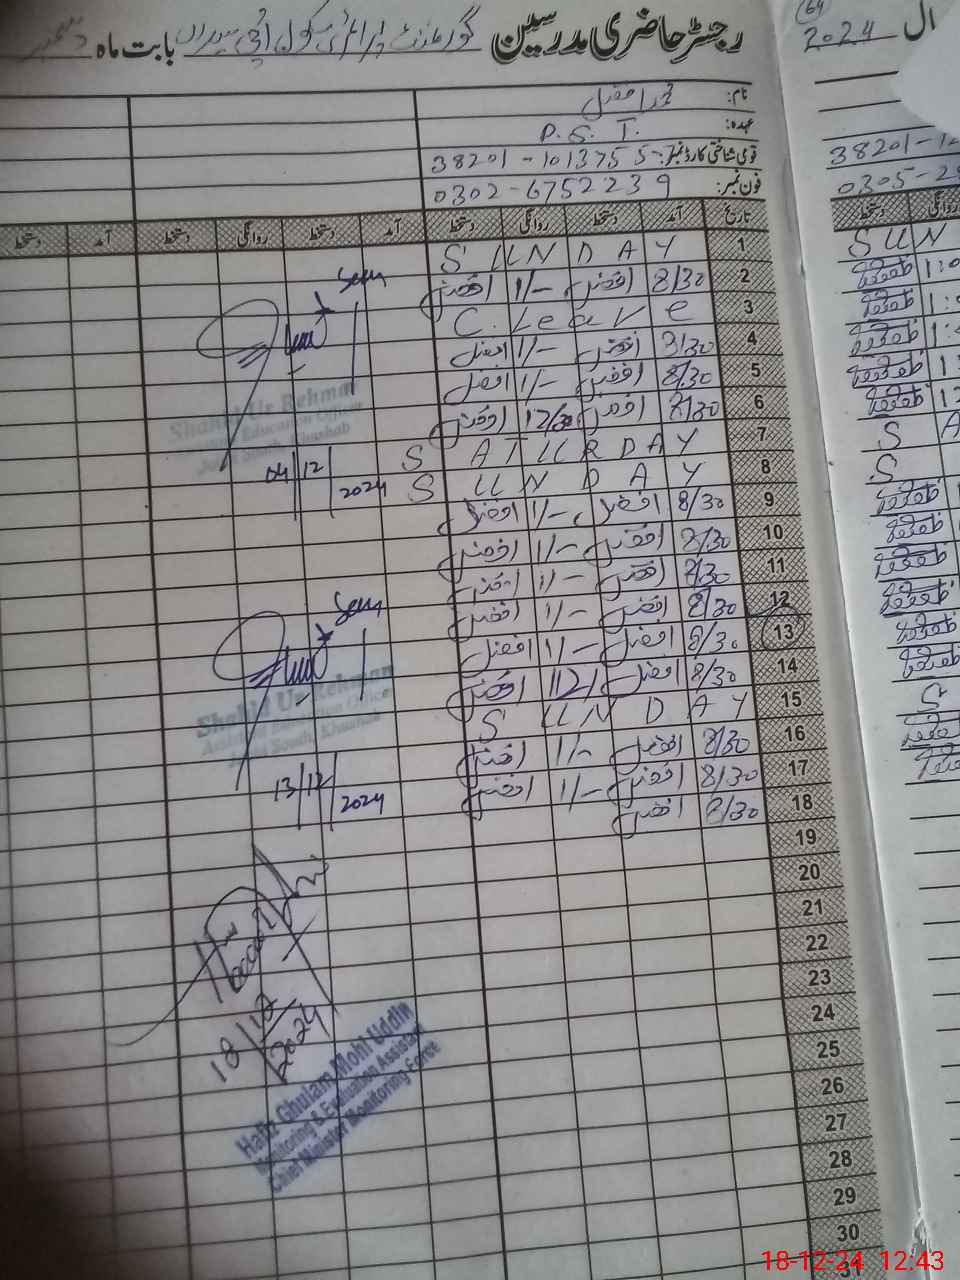 رجسٹر حاضری مدرسین گورنمنٹ پرائمری سکول بابت ماہ دسمبر
ال 2024
64
نام: محمد افضل
عہدہ: P.S.T.
قومی شناختی کارڈ نمبر: 38201-1013755-7
فون نمبر: 0302-6752239
تاریخ آمد دستخط روانگی دستخط آمد دستخط روانگی دستخط آمد دستخط
1 SUNDAY
2 8/30 افضل 1/- افضل
3 C. Leave
4 8/30 افضل 1/- افضل
5 8/30 افضل 1/- افضل
6 8/30 افضل 12/30 افضل
7 SATURDAY
8 SUNDAY
9 8/30 افضل 1/- افضل
10 8/30 افضل 1/- افضل
11 8/30 افضل 1/- افضل
12 8/30 افضل 1/- افضل
13 8/30 افضل 1/- افضل
14 8/30 افضل 12/ افضل
15 SUNDAY
16 8/30 افضل 1/- افضل
17 8/30 افضل 1/- افضل
18 8/30 افضل
19
20
21
22
23
24
25
26
27
28
29
30
31
Seen
Shahid Ur Rehman
Assistant Education Officer
South, Khushab
04/12/2024
Seen
Shahid Ur Rehman
Assistant Education Officer
South, Khushab
13/12/2024
18/12/2024
Hafiz Ghulam Mohi Uddin
Monitoring & Evaluation Assistant
Chief Minister Monitoring Force
38201-12
0305-2
روانگی دستخط
SUN
18-12-24 12:43